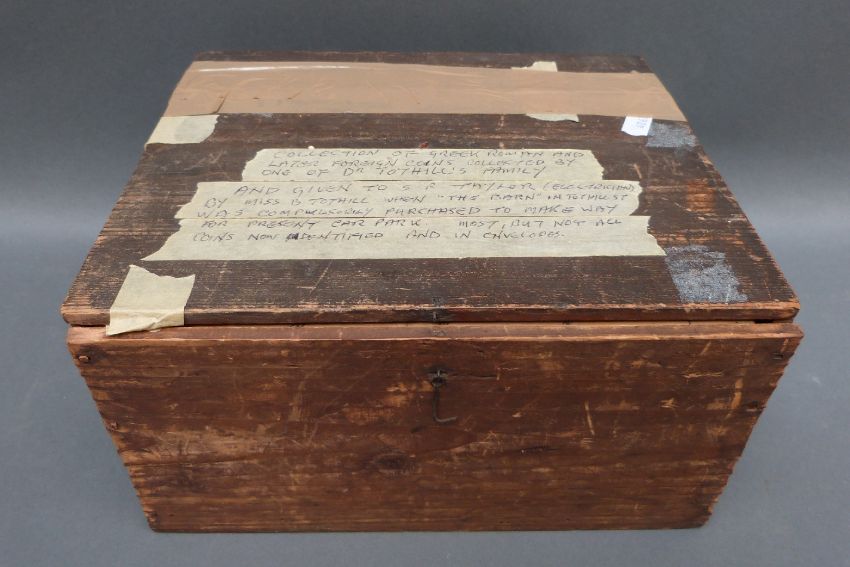 COLLECTION OF GREEK ROMAN AND
LATER FOREIGN COINS COLLECTED BY
ONE OF DR TOTHILL'S FAMILY
AND GIVEN TO S R TAYLOR (ELECTRICIAN)
BY MISS B TOTHILL WHEN "THE BARN" IN TOTHILL ST
WAS COMPULSORILY PURCHASED TO MAKE WAY
FOR PRESENT CAR PARK MOST, BUT NOT ALL
COINS NOW IDENTIFIED AND IN ENVELOPES.